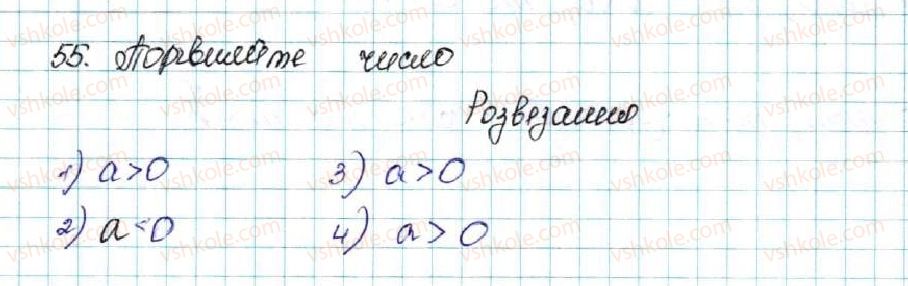 55. Порівняйте число
Розвязання
1) a > 0 3) a > 0
2) a < 0 4) a > 0